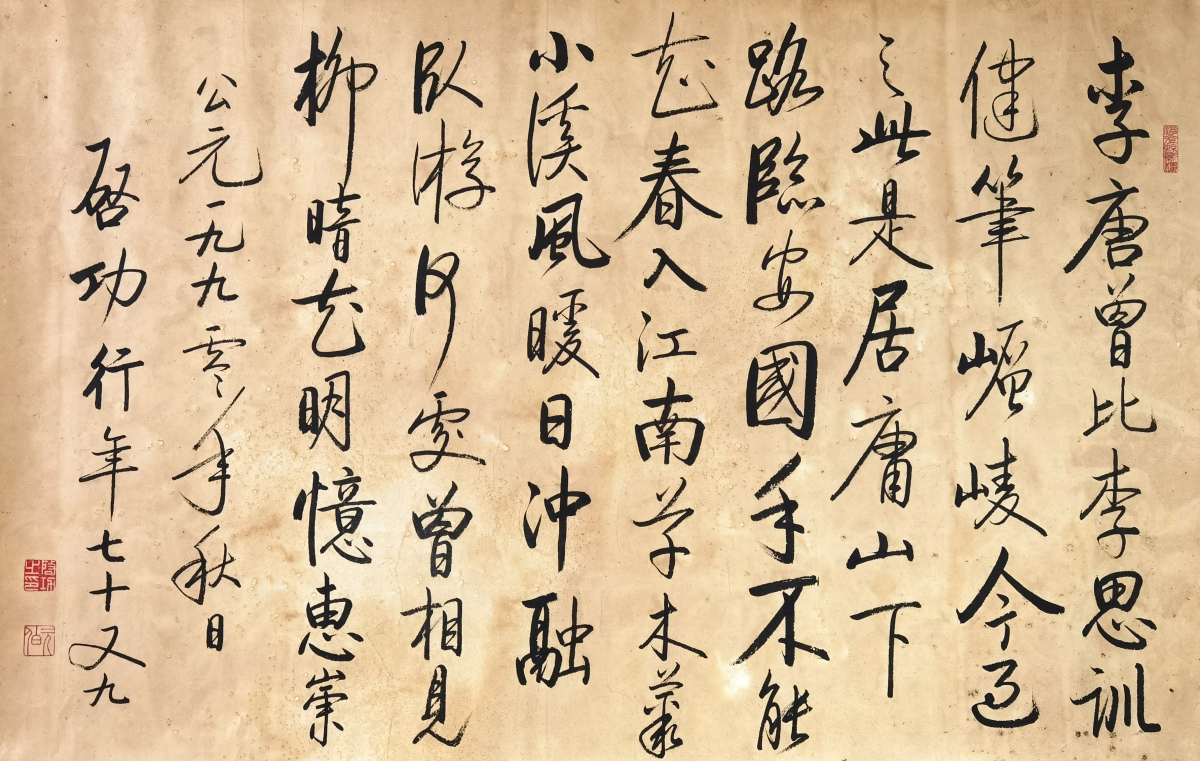 李唐曾比李思訓
健筆嶒崚今過
之此是居庸山下
路臨安國手不能
知春入江南草木叢
小溪風暖日沖融
臥游何處曾相見
柳暗花明憶惠崇
公元一九九零年秋日
啓功行年七十又九
啓功之印
元白